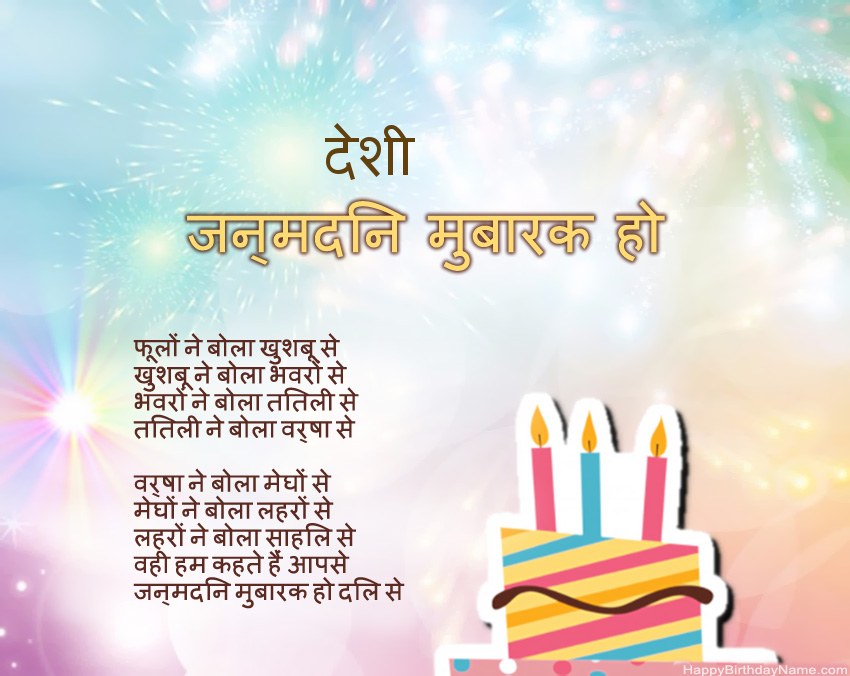 देशी
जन्‌मदनि मुबारक हो
फूलों ने बोला खुशबू से
खुशबू ने बोला भवरों से
भवरों ने बोला ततिली से
ततिली ने बोला वर्‌षा से
वर्‌षा ने बोला मेघों से
मेघों ने बोला लहरों से
लहरों ने बोला साहलि से
वही हम कहते हैं आपसे
जन्‌मदनि मुबारक हो दलि से
HappyBirthdayName.com